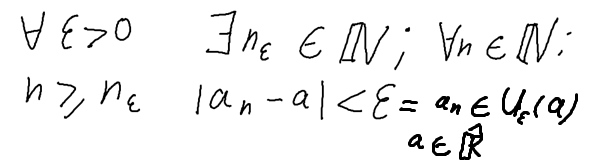 ∀ ε>0 ∃ n_ε ∈ ℕ; ∀n ∈ ℕ:
n ⩾ n_ε |a_n - a| < ε = a_n ∈ U_ε(a)
a ∈ ℝ̂